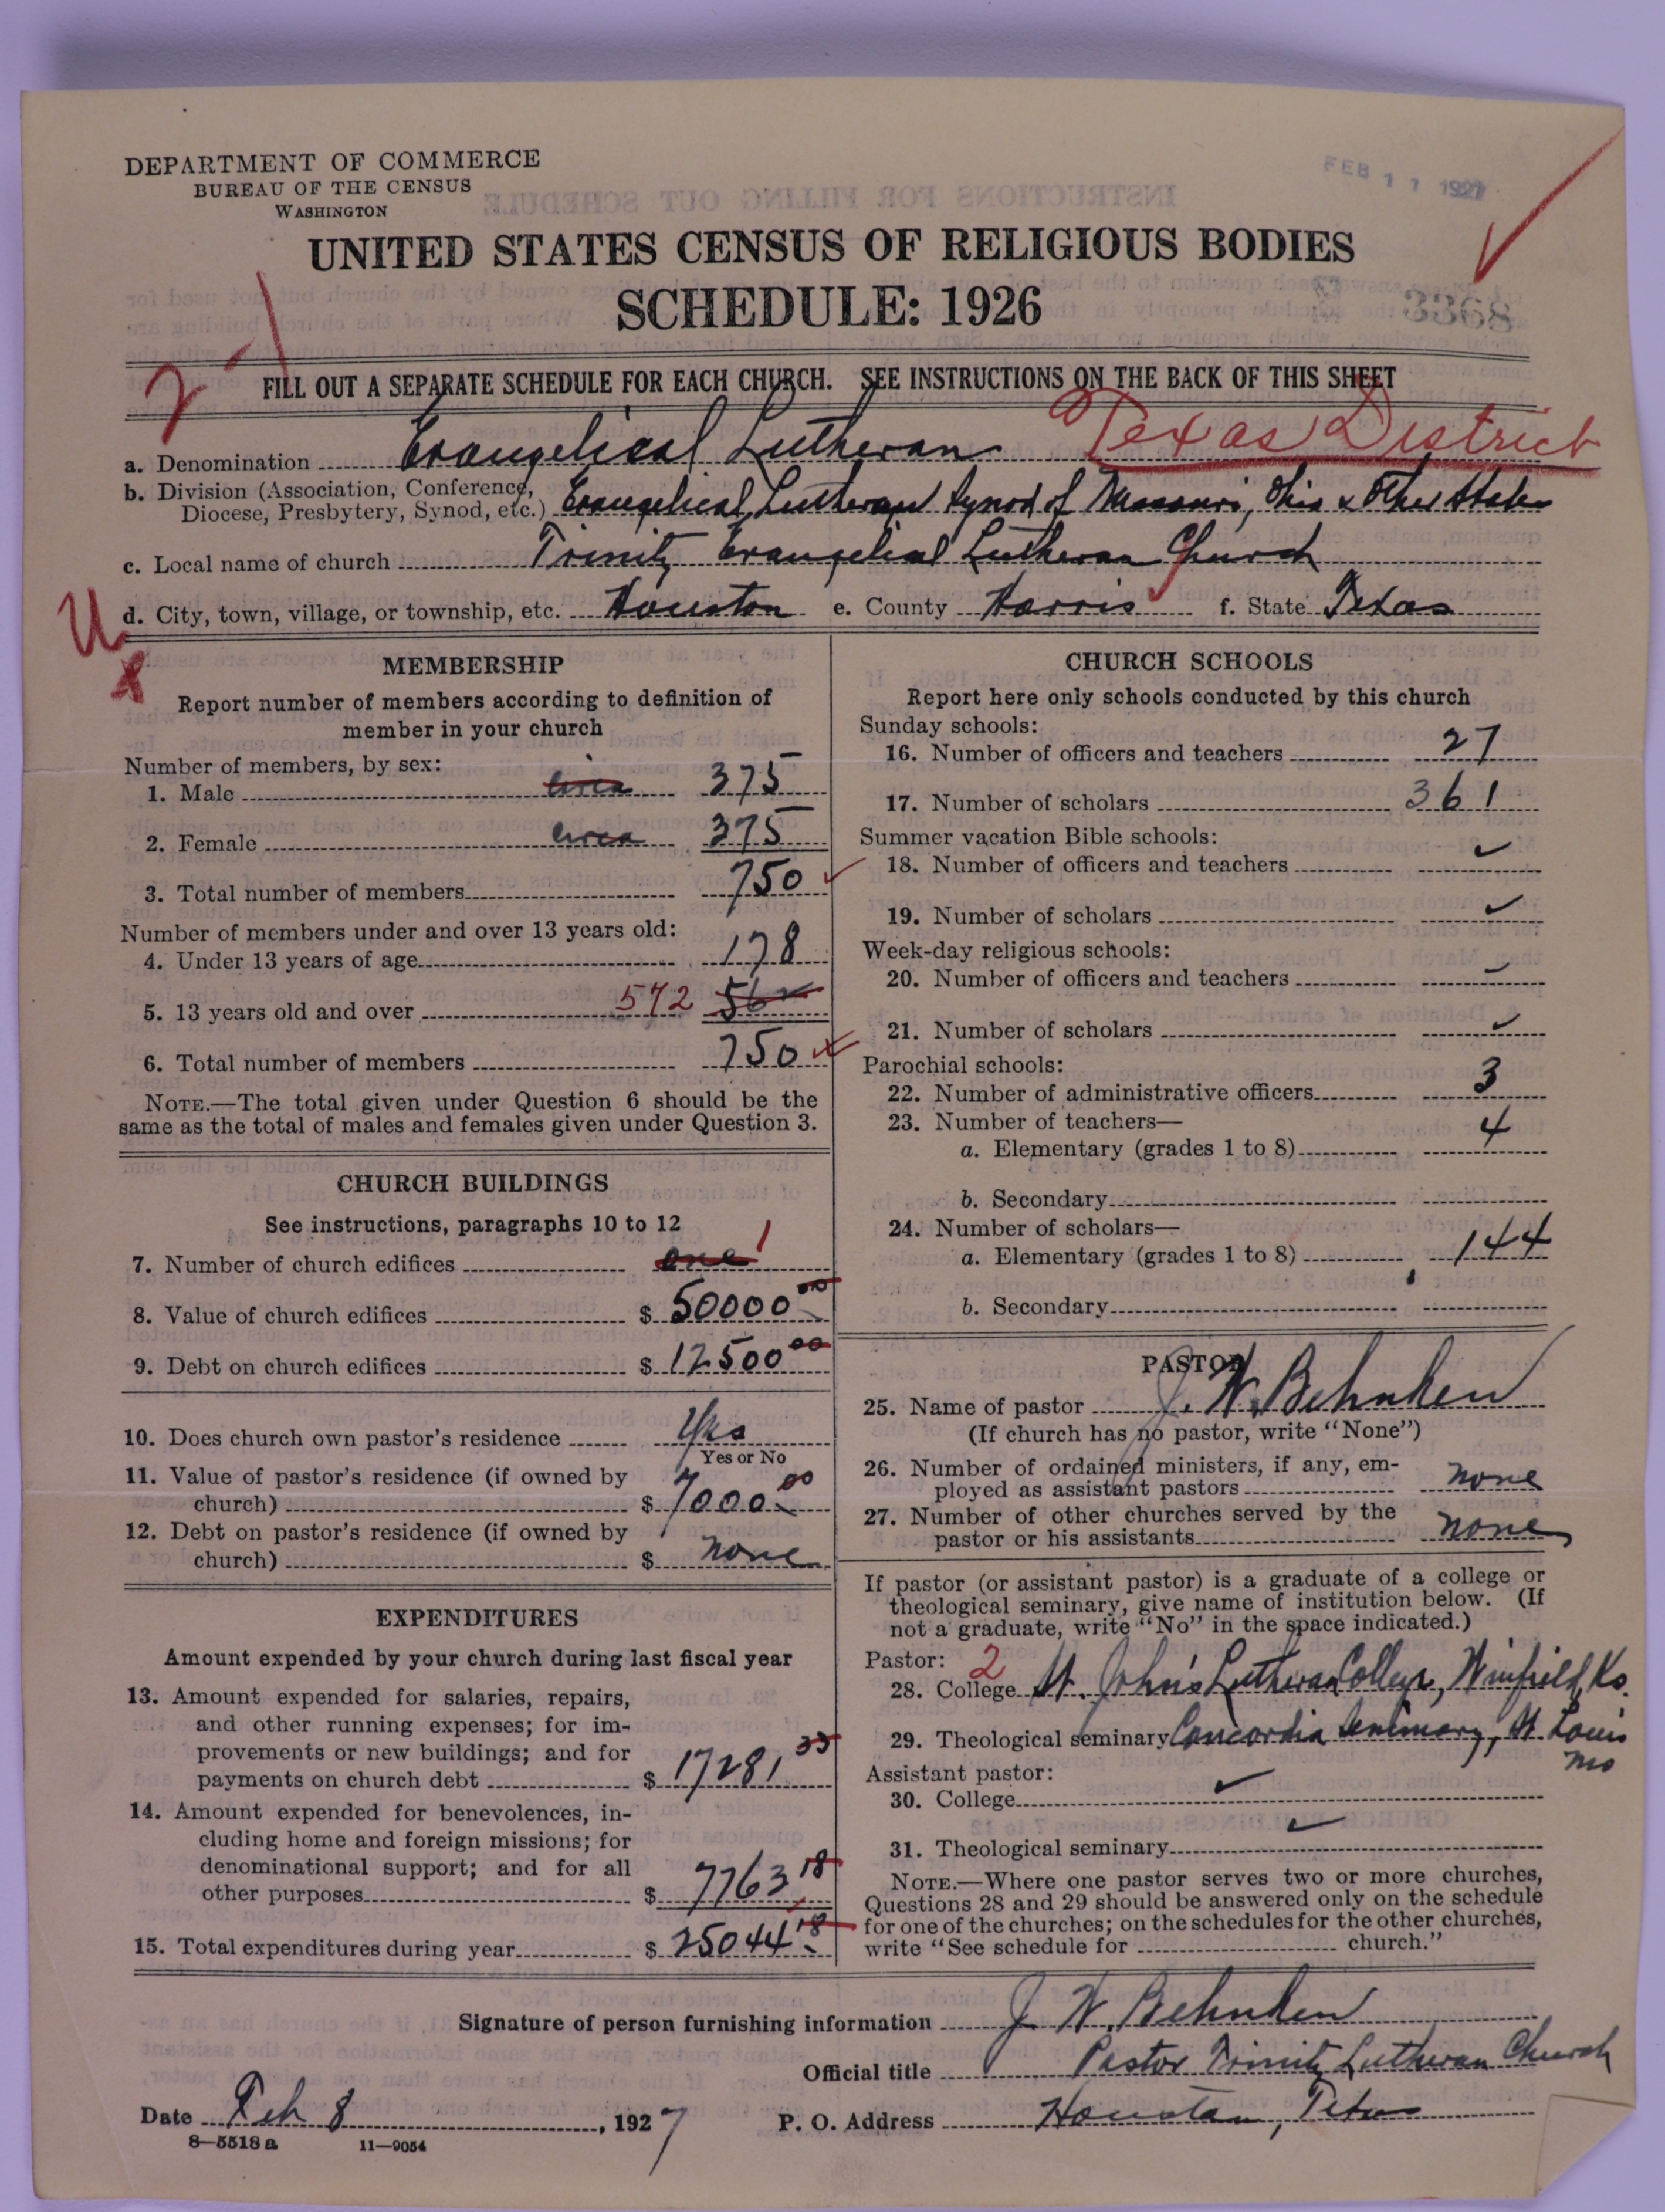 DEPARTMENT OF COMMERCE
BUREAU OF THE CENSUS
WASHINGTON
FEB 11 1927
UNITED STATES CENSUS OF RELIGIOUS BODIES
SCHEDULE: 1926
3368
FILL OUT A SEPARATE SCHEDULE FOR EACH CHURCH. SEE INSTRUCTIONS ON THE BACK OF THIS SHEET
a. Denomination Evangelical Lutheran Texas District
b. Division (Association, Conference,
Diocese, Presbytery, Synod, etc.) Evangelical Lutheran Synod of Missouri, Ohio & Other States
c. Local name of church Trinity Evangelical Lutheran Church
d. City, town, village, or township, etc. Houston e. County Harris f. State Texas
U
x
MEMBERSHIP
Report number of members according to definition of
member in your church
Number of members, by sex:
1. Male circa 375
2. Female circa 375
3. Total number of members 750
Number of members under and over 13 years old:
4. Under 13 years of age 178
5. 13 years old and over 572
6. Total number of members 750
NOTE.—The total given under Question 6 should be the
same as the total of males and females given under Question 3.
CHURCH BUILDINGS
See instructions, paragraphs 10 to 12
7. Number of church edifices one 1
8. Value of church edifices $ 50000 00
9. Debt on church edifices $ 12500 00
10. Does church own pastor's residence Yes
Yes or No
11. Value of pastor's residence (if owned by
church) $ 7000 00
12. Debt on pastor's residence (if owned by
church) $ none
EXPENDITURES
Amount expended by your church during last fiscal year
13. Amount expended for salaries, repairs,
and other running expenses; for im-
provements or new buildings; and for
payments on church debt $ 17281
14. Amount expended for benevolences, in-
cluding home and foreign missions; for
denominational support; and for all
other purposes $ 7763 18
15. Total expenditures during year $ 25044 18
CHURCH SCHOOLS
Report here only schools conducted by this church
Sunday schools:
16. Number of officers and teachers 27
17. Number of scholars 361
Summer vacation Bible schools:
18. Number of officers and teachers
19. Number of scholars
Week-day religious schools:
20. Number of officers and teachers
21. Number of scholars
Parochial schools:
22. Number of administrative officers 3
23. Number of teachers—
a. Elementary (grades 1 to 8) 4
b. Secondary
24. Number of scholars—
a. Elementary (grades 1 to 8) 144
b. Secondary
PASTOR
25. Name of pastor J. W. Behnken
(If church has no pastor, write "None")
26. Number of ordained ministers, if any, em-
ployed as assistant pastors none
27. Number of other churches served by the
pastor or his assistants none
If pastor (or assistant pastor) is a graduate of a college or
theological seminary, give name of institution below. (If
not a graduate, write "No" in the space indicated.)
Pastor: 2
28. College St. John's Lutheran College, Winfield, Ks.
29. Theological seminary Concordia Seminary, St. Louis
Mo
Assistant pastor:
30. College
31. Theological seminary
NOTE.—Where one pastor serves two or more churches,
Questions 28 and 29 should be answered only on the schedule
for one of the churches; on the schedules for the other churches,
write "See schedule for church."
Signature of person furnishing information J. W. Behnken
Official title Pastor Trinity Lutheran Church
Date Feb 8, 1927 P. O. Address Houston, Texas
8—5518 a 11—9054